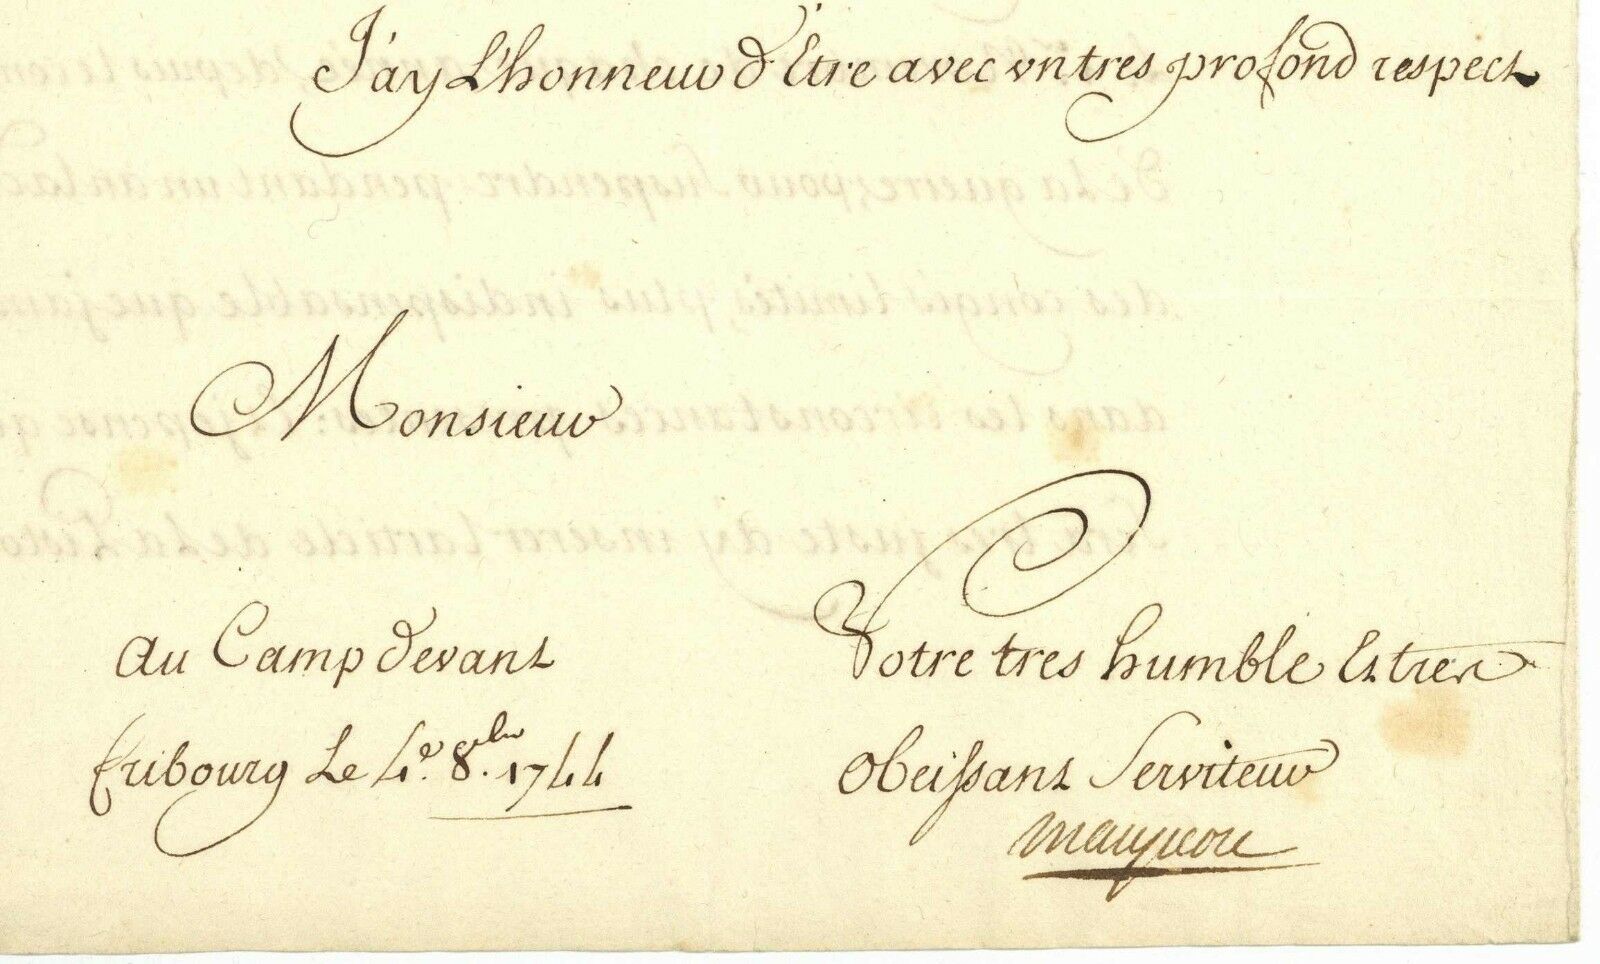 J'ay L'honneur d'Etre avec un tres profond respect
Monsieur
au Camp devant
fribourg Le 4e. 8.bre 1744
Votre tres humble Et tres
obeissant Serviteur